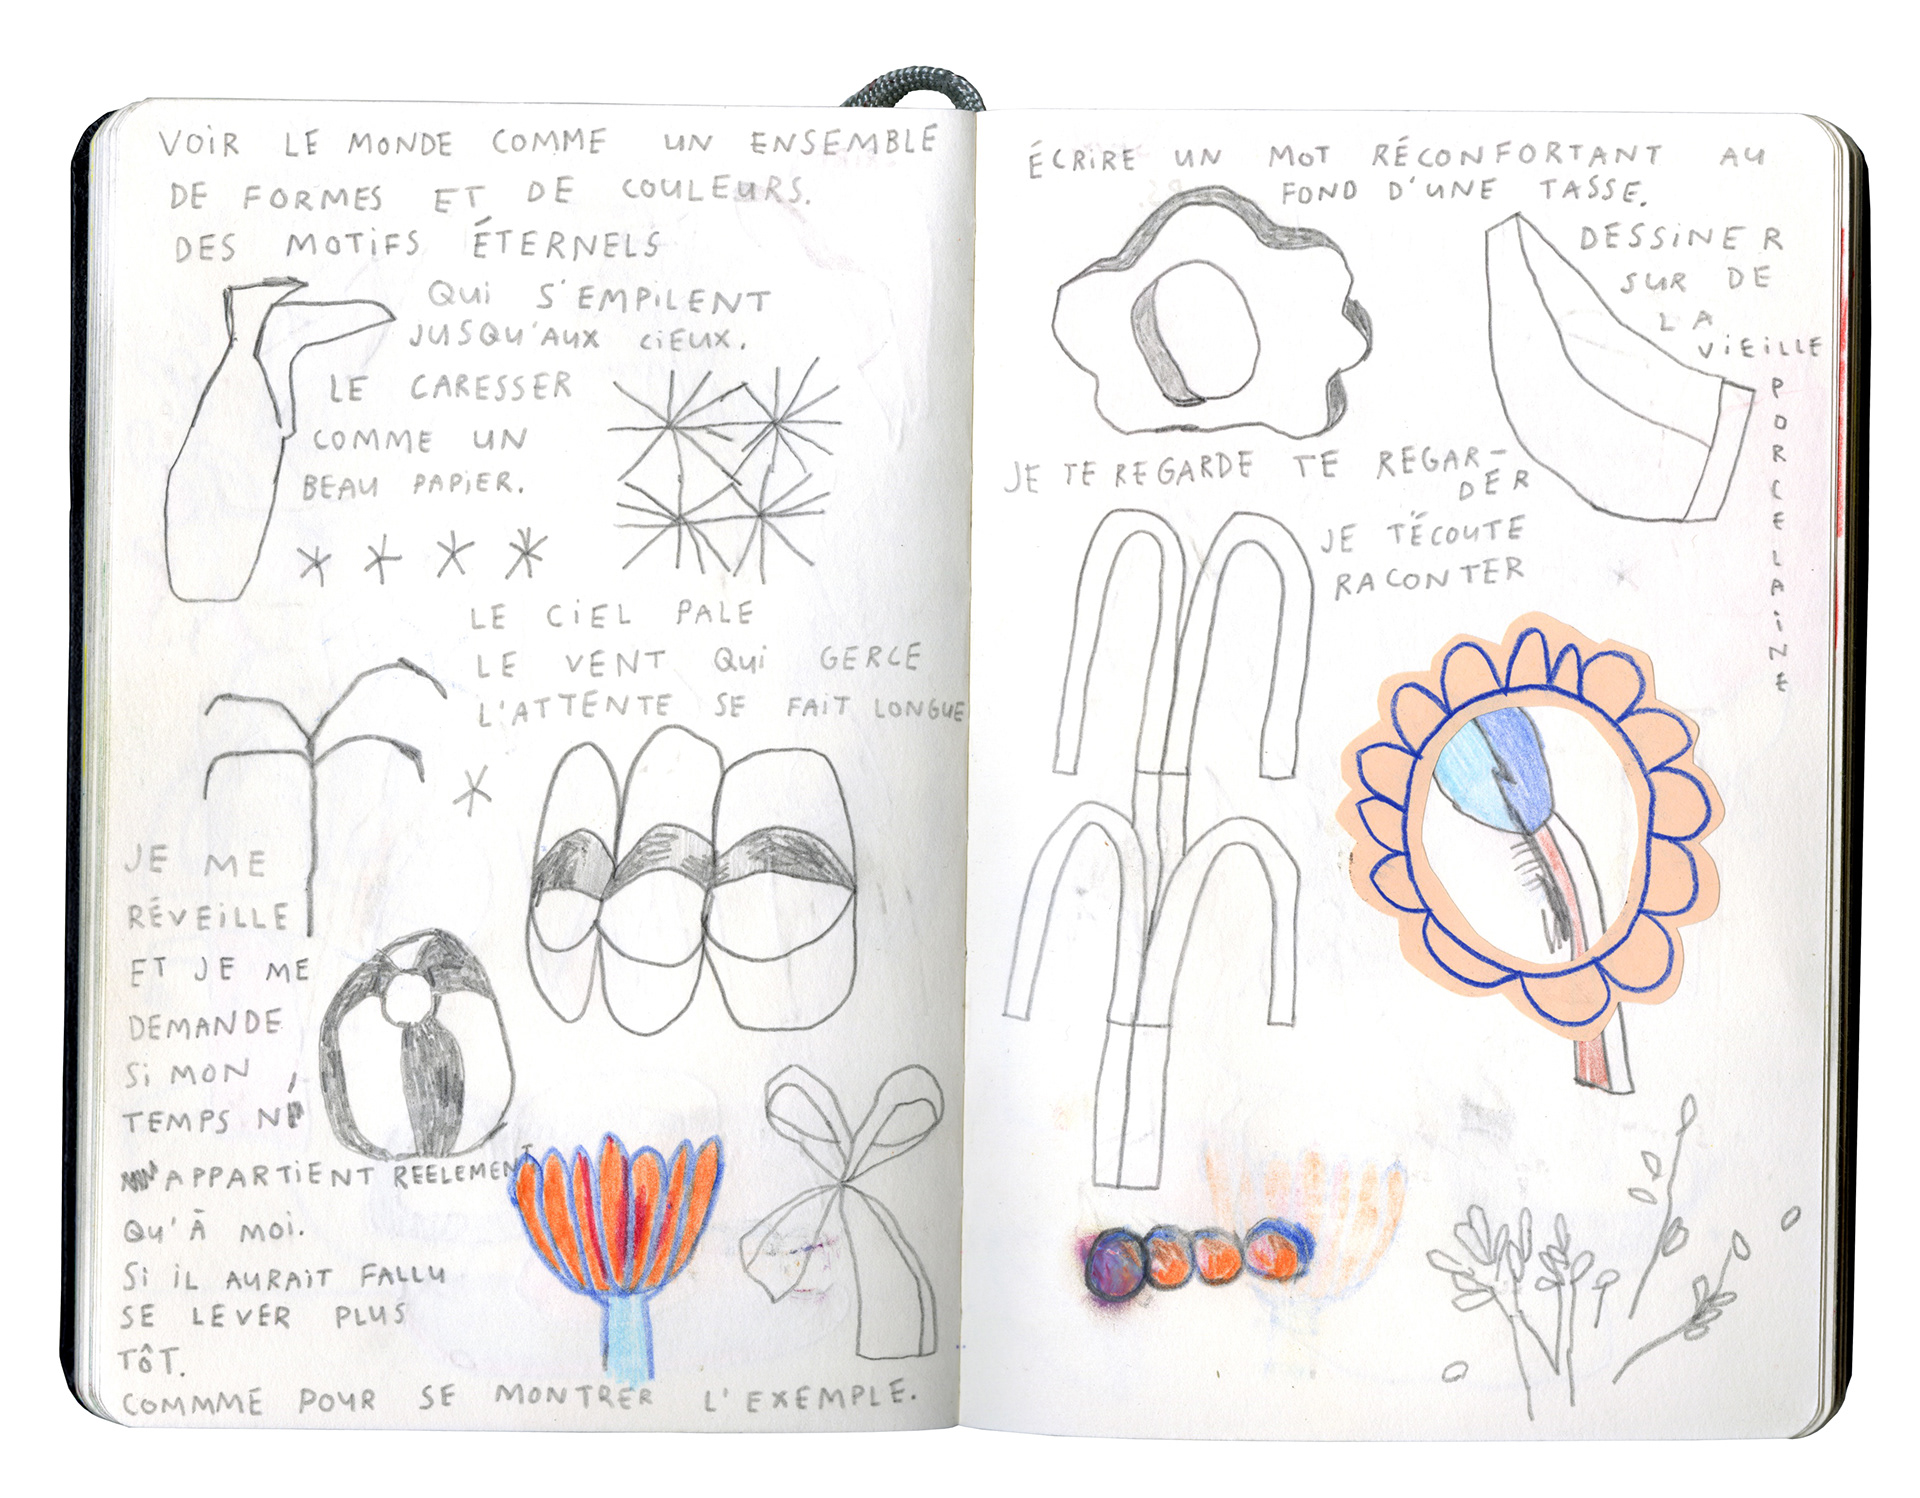 VOIR LE MONDE COMME UN ENSEMBLE
DE FORMES ET DE COULEURS.
DES MOTIFS ÉTERNELS
QUI S'EMPILENT
JUSQU'AUX CIEUX.
LE CARESSER
COMME UN
BEAU PAPIER.
LE CIEL PALE
LE VENT QUI GERCE
L'ATTENTE SE FAIT LONGUE
JE ME
RÉVEILLE
ET JE ME
DEMANDE
SI MON
TEMPS N'
APPARTIENT REELEMENT
QU'À MOI.
SI IL AURAIT FALLU
SE LEVER PLUS
TÔT.
COMMME POUR SE MONTRER L'EXEMPLE.
ÉCRIRE UN MOT RÉCONFORTANT AU
FOND D'UNE TASSE.
DESSINER
SUR DE
LA
VIEILLE
PORCELAINE
JE TE REGARDE TE REGAR-
DER
JE T'ÉCOUTE
RACONTER